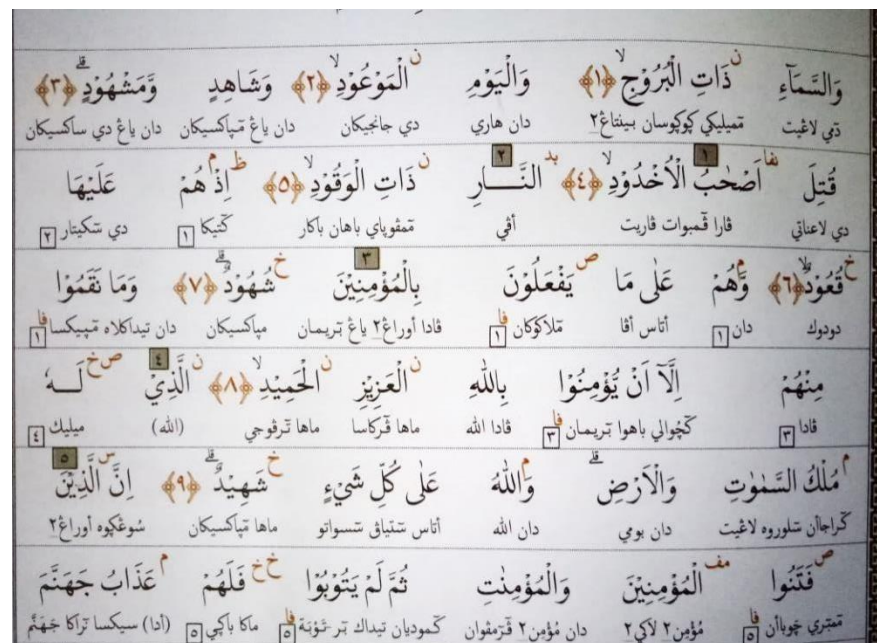 وَالسَّمَآءِ ذَاتِ الْبُرُوْجِ ﴿١﴾ وَالْيَوْمِ الْمَوْعُوْدِ ﴿٢﴾ وَشَاهِدٍ وَّمَشْهُوْدٍ ﴿٣﴾
دٚمي لاڠيت تٚميليكي ڮوڮوسان بينتاڠ٢ دان هاري دي جانجيكان دان ياڠ مٚپاكسيكان دان ياڠ دي ساكسيكان
قُتِلَ اَصْحٰبُ الْاُخْدُوْدِ ﴿٤﴾ النَّــــارِ ذَاتِ الْوَقُوْدِ ﴿٥﴾ اِذْ هُمْ عَلَيْهَا
دي لاعناتي ڤارا ڤٚمبوات ڤاريت أڤي مٚمڤوپاي باهان باكار كٚتيكا ١ دي سٚكيتار ٢
قُعُوْدٌ ﴿٦﴾ وَّهُمْ عَلٰى مَا يَفْعَلُوْنَ بِالْمُؤْمِنِيْنَ شُهُوْدٌ ﴿٧﴾ وَمَا نَقَمُوْا
دودوك دان ١ أتاس أڤا مٚلاكوكان ١ ڤادا أوراڠ٢ ياڠ بٚريمان مٚپاكسيكان دان تيداكلاه مٚپيكسا ١
مِنْهُمْ اِلَّآ اَنْ يُّؤْمِنُوْا بِاللهِ الْعَزِيْزِ الْحَمِيْدِ ﴿٨﴾ الَّذِيْ لَــهٗ
ڤادا ٣ كٚچوالي باهوا بٚريمان ٣ ڤادا الله ماها ڤٚركاسا ماها تٚرڤوجي (الله) ميليك ٤
مُلْكُ السَّمٰوٰتِ وَالْاَرْضِ وَاللهُ عَلٰى كُلِّ شَيْءٍ شَهِيْدٌ ﴿٩﴾ اِنَّ الَّذِيْنَ
كٚراجاأن سٚلوروه لاڠيت دان بومي دان الله أتاس سٚتياڤ سٚسواتو ماها مٚپاكسيكان سوڠڮوه أوراڠ٢
فَتَنُوا الْمُؤْمِنِيْنَ وَالْمُؤْمِنٰتِ ثُمَّ لَمْ يَتُوْبُوْا فَلَهُمْ عَذَابُ جَهَنَّمَ
مٚمبٚري چوباأن ٥ مُؤْمِن٢ لاكي٢ دان مُؤْمِن٢ ڤٚرٚمڤوان كٚموديان تيداك بٚر-تَوْبَة ٥ ماكا باڮي ٥ (أدا) سيكسا نٚراكا جَهَنَّم